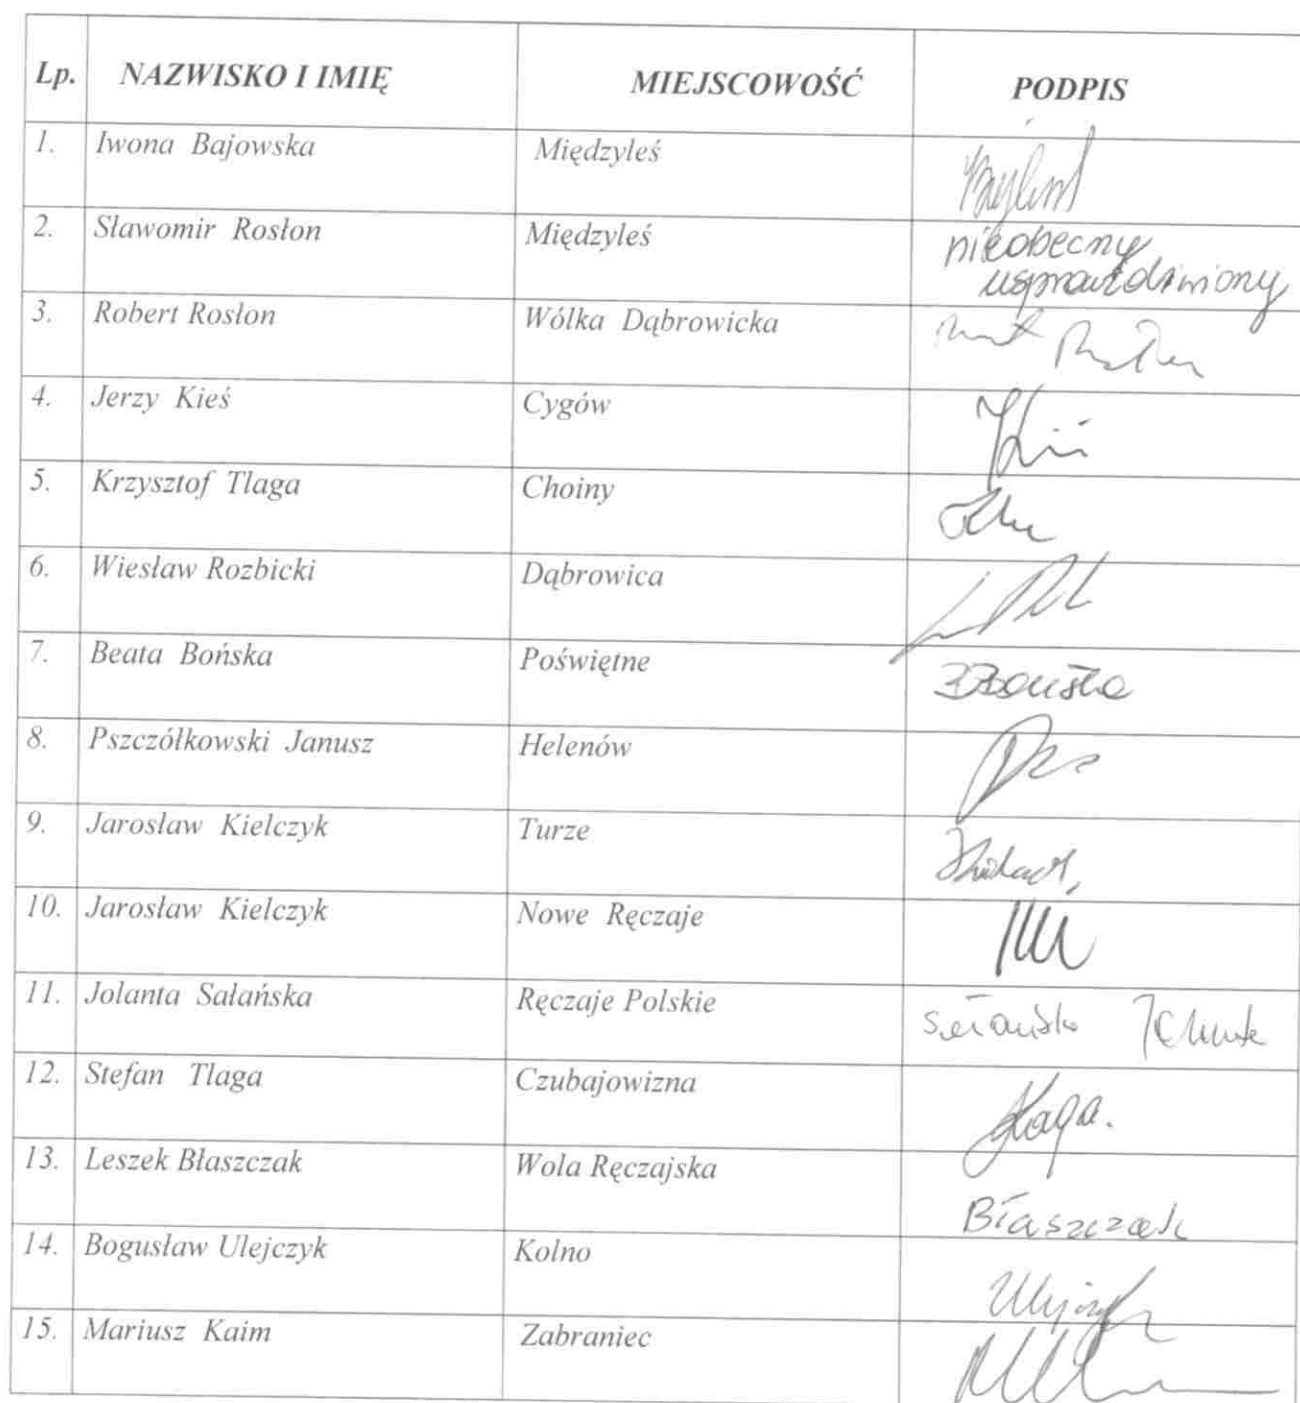 Lp. NAZWISKO I IMIĘ MIEJSCOWOŚĆ PODPIS
1. Iwona Bajowska Międzyleś
2. Sławomir Rosłon Międzyleś nieobecny
usprawiedliwiony
3. Robert Rosłon Wólka Dąbrowicka
4. Jerzy Kieś Cygów
5. Krzysztof Tlaga Choiny
6. Wiesław Rozbicki Dąbrowica
7. Beata Bońska Poświętne BBońska
8. Pszczółkowski Janusz Helenów
9. Jarosław Kielczyk Turze
10. Jarosław Kielczyk Nowe Ręczaje
11. Jolanta Sałańska Ręczaje Polskie
12. Stefan Tlaga Czubajowizna
13. Leszek Błaszczak Wola Ręczajska Błaszczak
14. Bogusław Ulejczyk Kolno
15. Mariusz Kaim Zabraniec